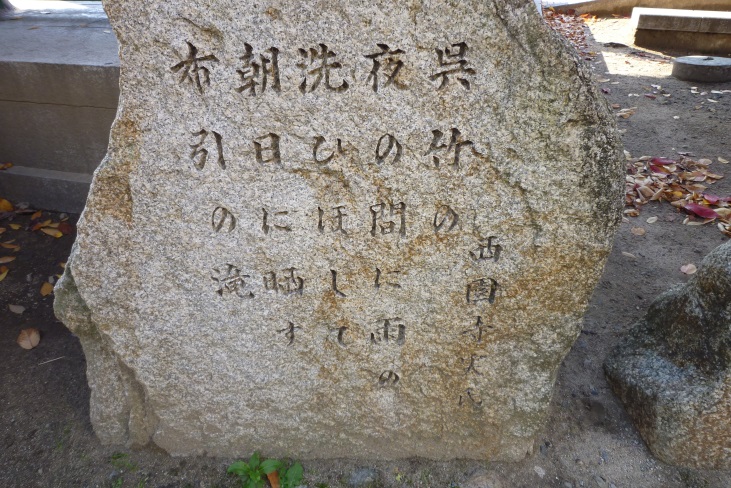 西園寺大臣
呉竹の
夜の間に雨の
洗ひほして
朝日に晒す
布引の滝